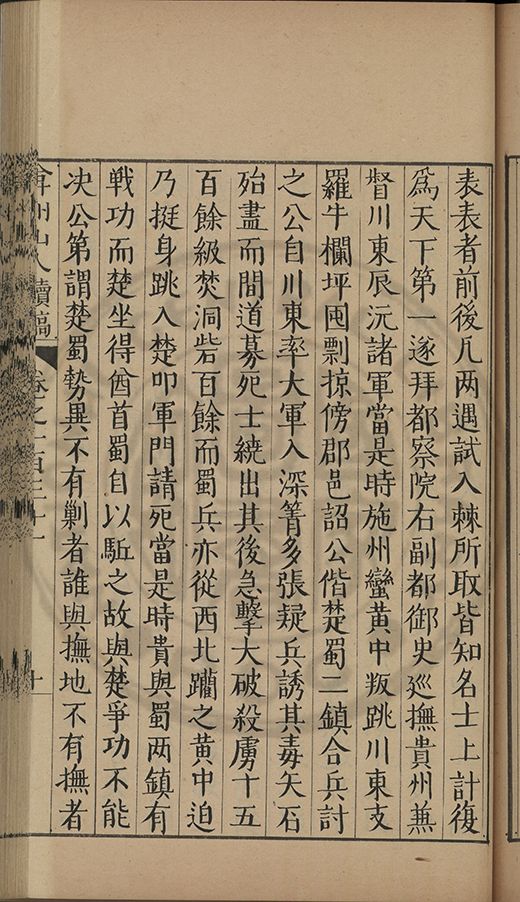 表表者前後凡两遇試入棘所取皆知名士上計復
為天下第一遂拜都察院右副都御史巡撫貴州兼
督川東辰沅諸軍當是時施州蠻黄中叛跳川東支
羅牛欄坪囤剽掠傍郡邑詔公偕楚蜀二鎮合兵討
之公自川東率大軍入深箐多張疑兵誘其毒矢石
殆盡而間道募死士繞出其後急擊大破殺虜十五
百餘級焚洞砦百餘而蜀兵亦從西北躪之黄中迫
乃挺身跳入楚叩軍門請死當是時貴與蜀两鎮有
戰功而楚坐得酋首蜀自以駈之故與楚爭功不能
决公第謂楚蜀勢異不有剿者誰與撫地不有撫者
弇州山人續稿 卷之一百三十一 十